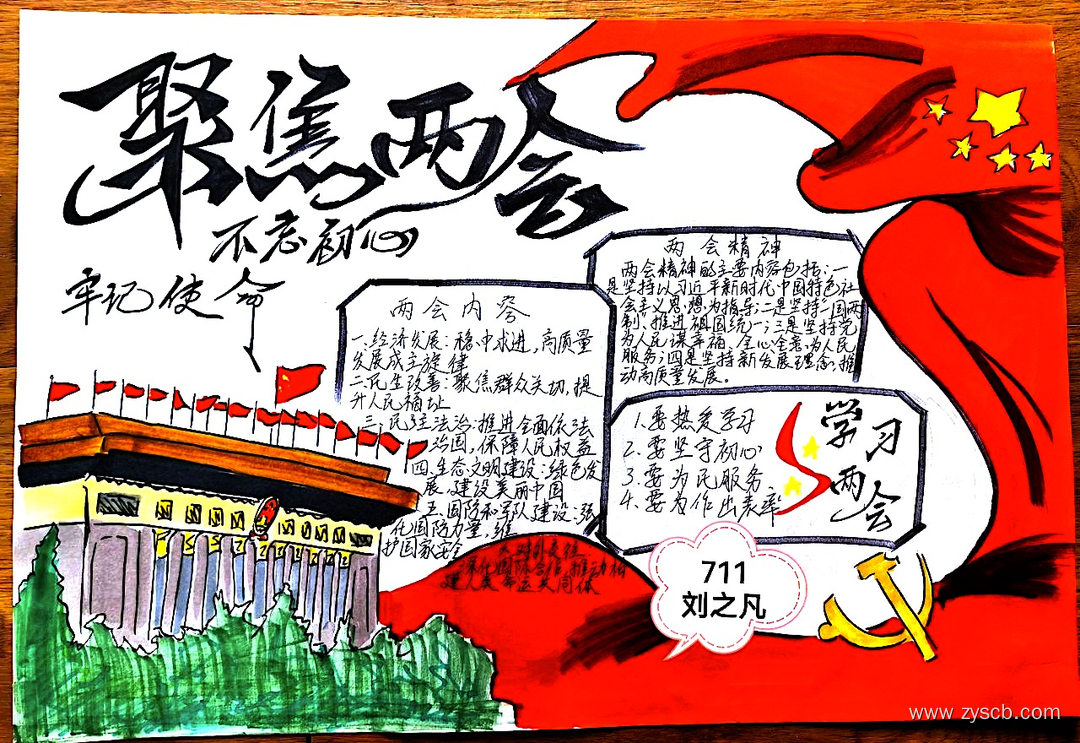 聚焦两会
不忘初心
牢记使命
两会内容
一、经济发展：稳中求进，高质量
发展成主旋律
二、民生改善：聚焦群众关切，提
升人民福址
三、民主法治：推进全面依法
治国，保障人民权益
四、生态文明建设：绿色发
展，建设美丽中国
五、国防和军队建设：强
化国防力量，维
护国家安全
深化国际合作，推动构
建人类命运共同体
两会精神
两会精神的主要内容包括：一
是坚持以习近平新时代中国特色社
会主义思想为指导；二是坚持“一国两
制”、推进祖国统一；三是坚持党
为人民谋幸福，全心全意为人民
服务；四是坚持新发展理念，推
动高质量发展。
1.要热爱学习
2.要坚守初心
3.要为民服务
4.要为作出表率
学习
两会
711
刘之凡
www.zyscb.com